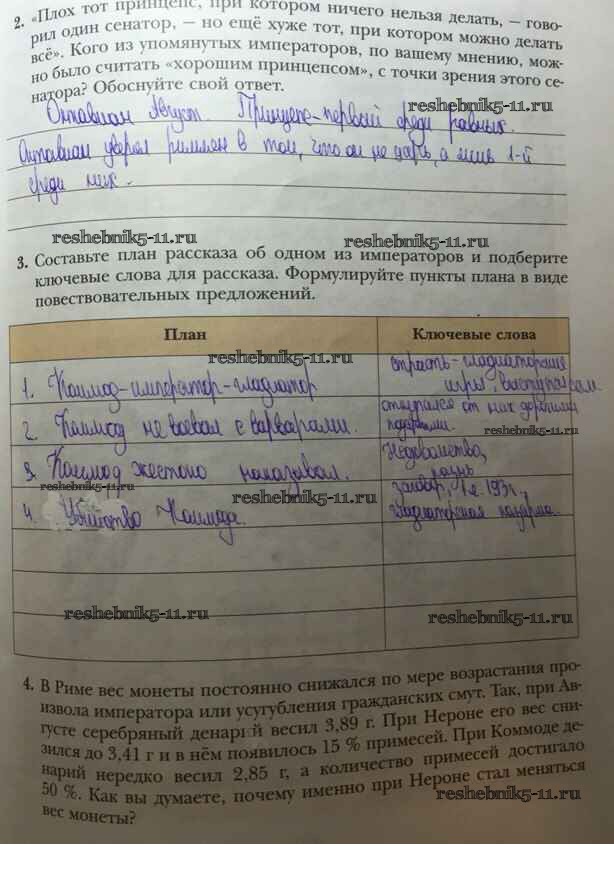 2. «Плох тот принцепс, при котором ничего нельзя делать, – гово-
рил один сенатор, – но ещё хуже тот, при котором можно делать
всё». Кого из упомянутых императоров, по вашему мнению, мож-
но было считать «хорошим принцепсом», с точки зрения этого се-
натора? Обоснуйте свой ответ.
reshebnik5-11.ru
Октавиан Август. Принцепс-первый среди равных.
Октавиан уверял римлян в том, что он не царь, а лишь 1-й
среди них.
reshebnik5-11.ru
reshebnik5-11.ru
3. Составьте план рассказа об одном из императоров и подберите
ключевые слова для рассказа. Формулируйте пункты плана в виде
повествовательных предложений.
План Ключевые слова
reshebnik5-11.ru
1. Коммод-император-гладиатор страсть-гладиаторские
игры. выступал сам.
2. Коммод не воевал с варварами. откупался от них дорогими
подарками.
reshebnik5-11.ru
3. Коммод жестоко наказывал. Недовольства,
казнь
reshebnik5-11.ru
4. Убийство Коммода. заговор, 193г.,
гладиаторская казарма.
reshebnik5-11.ru
reshebnik5-11.ru
reshebnik5-11.ru
reshebnik5-11.ru
4. В Риме вес монеты постоянно снижался по мере возрастания про-
извола императора или усугубления гражданских смут. Так, при Ав-
густе серебряный денарий весил 3,89 г. При Нероне его вес сни-
зился до 3,41 г и в нём появилось 15 % примесей. При Коммоде де-
нарий нередко весил 2,85 г, а количество примесей достигало
50 %. Как вы думаете, почему именно при Нероне стал меняться
вес монеты?
reshebnik5-11.ru